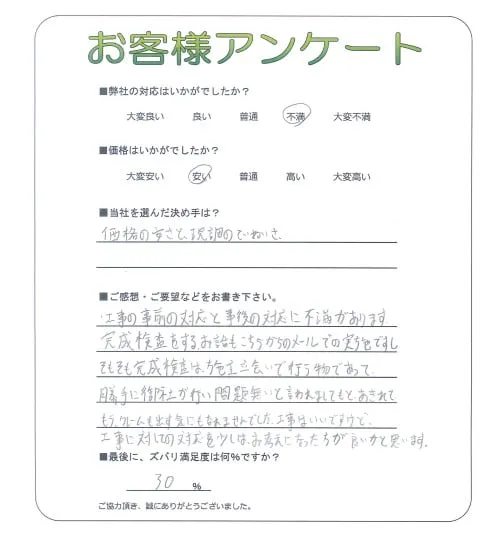 お客様アンケート
■弊社の対応はいかがでしたか？
大変良い 良い 普通 不満 大変不満
■価格はいかがでしたか？
大変安い 安い 普通 高い 大変高い
■当社を選んだ決め手は？
価格の安さと、現調のていねいさ、
■ご感想・ご要望などをお書き下さい。
工事の事前の対応と事後の対応に不満があります
完成検査をするお話もこちらからのメールでの
そもそも完成検査は、施主立会いで行う物であって、
勝手に御社が行い問題無いと言われましてもと、あきれて
もう、クレームも出す気にもなれませんでした、工事はいいですけど、
工事に対しての対応を少しは、お考えになった方が良いかと思います。
■最後に、ズバリ満足度は何％ですか？
30 ％
ご協力頂き、誠にありがとうございました。